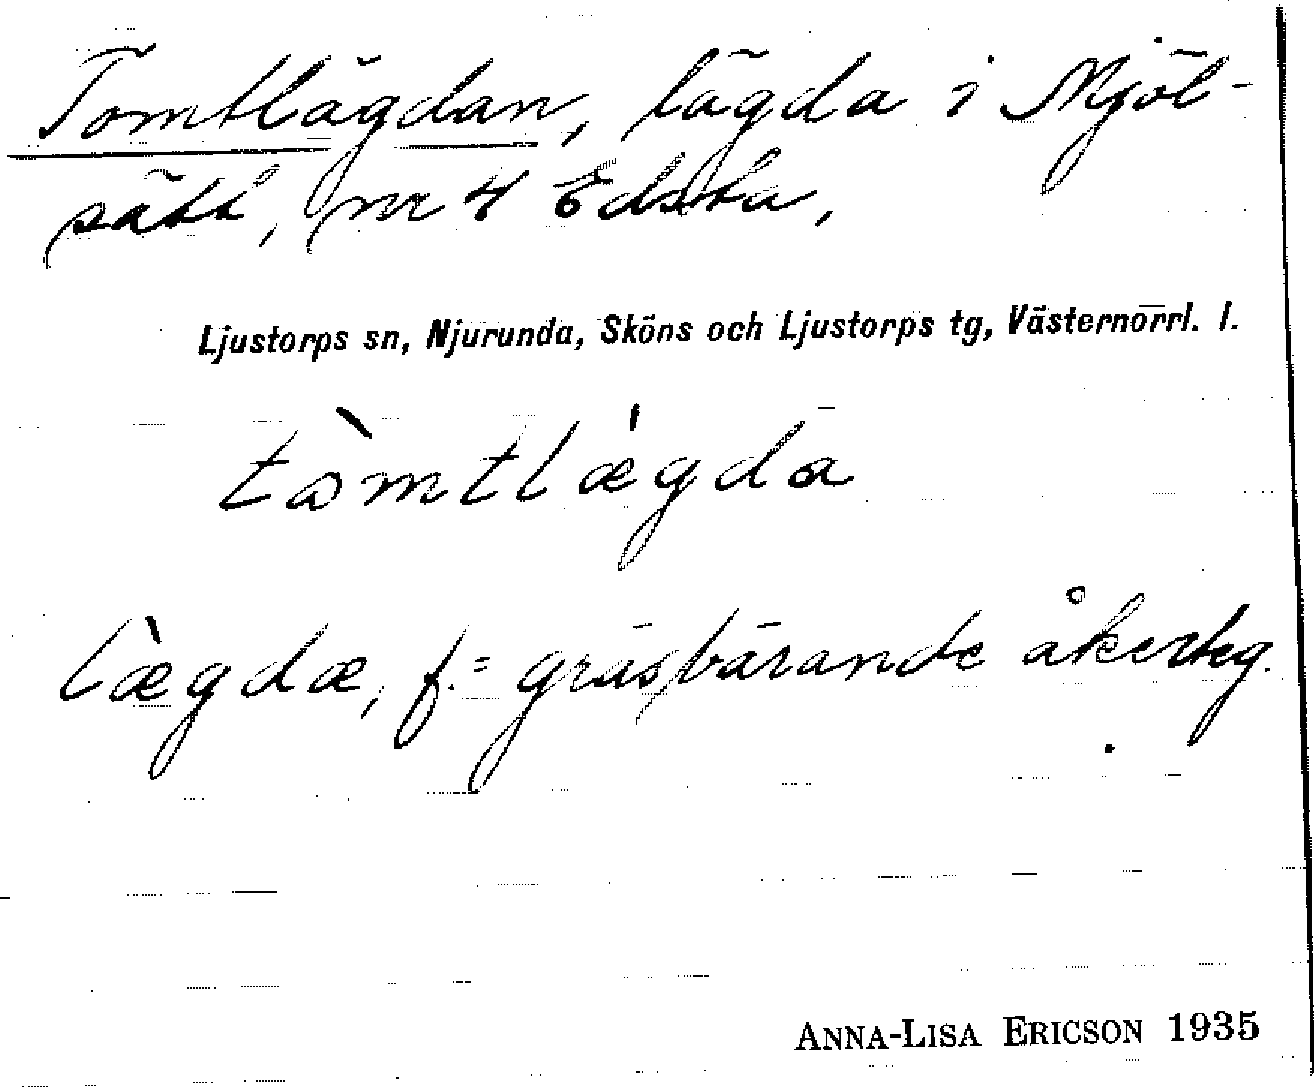 Tomtlägdan, lägda i Mjöl-
sätt, nr 4 Edsta,
Ljustorps sn, Njurunda, Sköns och Ljustorps tg, Västernorrl. l.
tòmtlǽgda
læ̀gdæ, f. = gräsbärande åkerteg.
ANNA-LISA ERICSON 1935